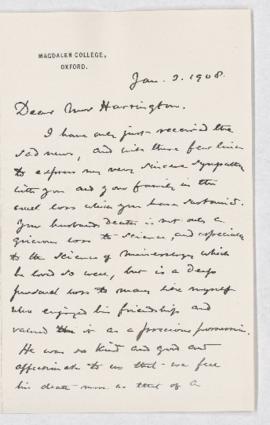 MAGDALEN COLLEGE,
OXFORD.
Jan. 2. 1908.
Dear Mrs Harrington.
I have only just received the
sad news, and write these few lines
to express my very sincere sympathy
with you and your family in the
cruel loss which you have sustained.
Your husband's death is not only a
grievous loss to science, and especially
to the science of mineralogy which
he loved so well, but is a deep
personal loss to many like myself
who enjoyed his friendship and
valued it as a precious possession.
He was so kind and good and
affectionate to us that we feel
his death more as that of a